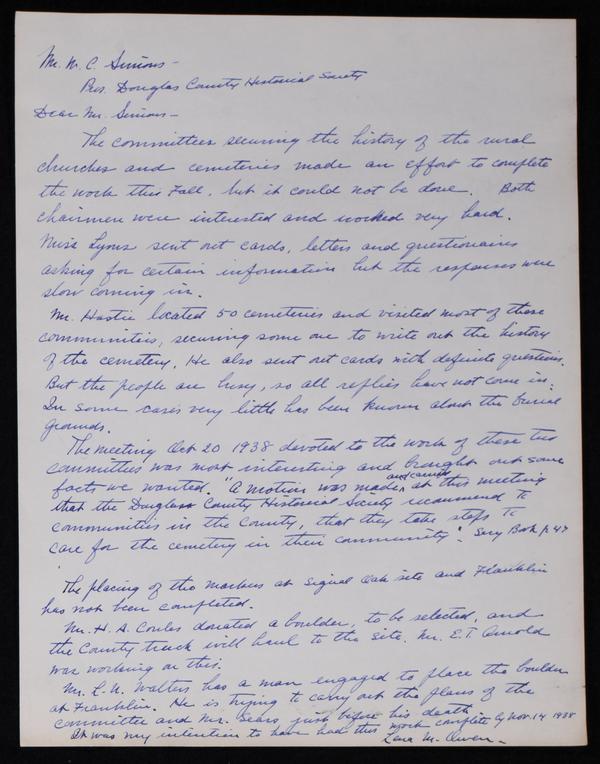 Mr. W. C. Simons -
Pres. Douglas County Historical Society
Dear Mr. Simons -
The committees securing the history of the rural
churches and cemeteries made an effort to complete
the work this Fall, but it could not be done. Both
chairmen were interested and worked very hard.
Miss Lyons sent out cards, letters and questionaires
asking for certain information but the responses were
slow coming in.
Mr. Hastie located 50 cemeteries and visited most of these
communities, securing some one to write out the history
of the cemetery. He also sent out cards with definite questions.
But the people are busy, so all replies have not come in.
In some cases very little has been known about the burial
grounds.
The meeting Oct 20 1938 devoted to the work of these two
committees was most interesting and brought out some
facts we wanted. "A motion was made, and carried at this meeting
that the Douglas County Historical Society recommend to
communities in the County, that they take steps to
care for the cemetery in their community". Secy Book p. 47
The placing of two markers at Signal Oak site and Franklin
has not been completed.
Mr. H. A. donated a boulder, to be selected, and
the County truck will haul to the site. Mr. E. T. Arnold
was working on this.
Mr. L. N. Walters has a man engaged to place the boulder
at Franklin. He is trying to carry out the plans of the
committee and Mr. Sears, just before his death.
It was my intention to have had this work complete by Nov. 14 1938
Lena M. Owen -